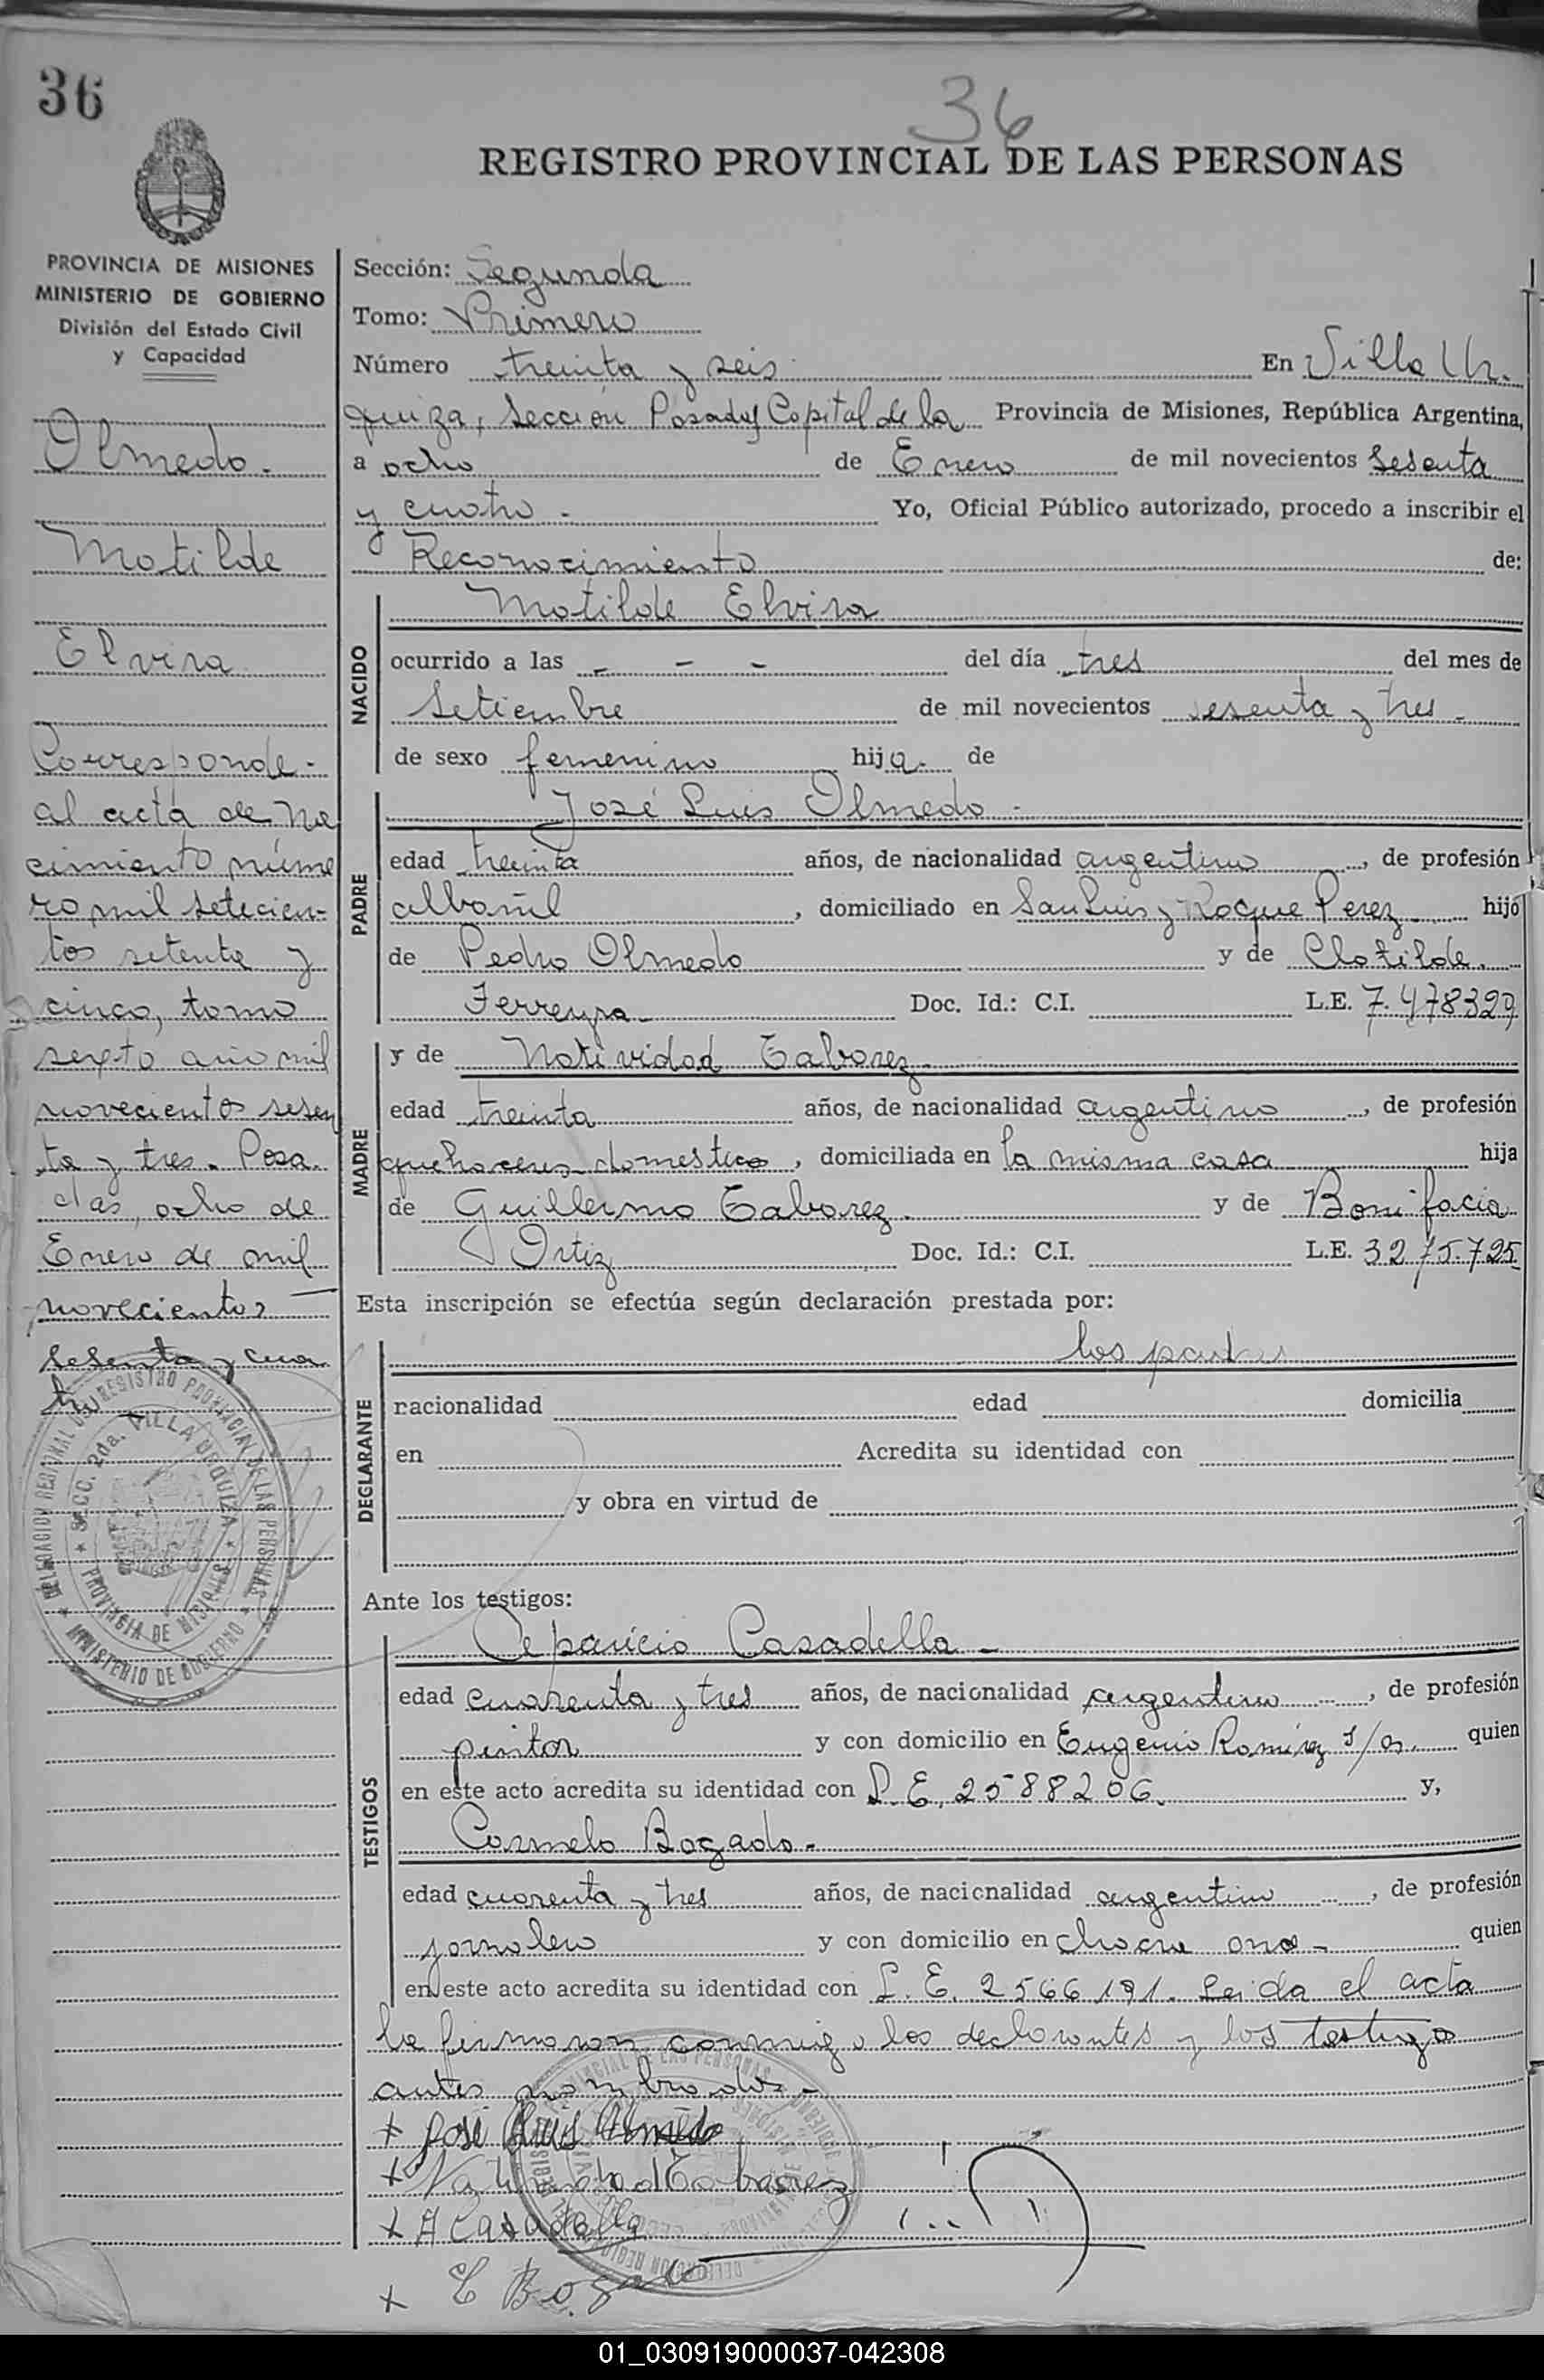 36
36
REGISTRO PROVINCIAL DE LAS PERSONAS
PROVINCIA DE MISIONES
MINISTERIO DE GOBIERNO
División del Estado Civil
y Capacidad
Olmedo.
Matilde
Elvira
Corresponde
al acta de Na
cimiento núme
ro mil setecien-
tos setenta y
cinco, tomo
sexto año mil
novecientos sesen
ta y tres. Posa
das, ocho de
Enero de mil
novecientos
sesenta y cua
tro
DELEGACION REGIONAL DEL REGISTRO PROVINCIAL DE LAS PERSONAS
MINISTERIO DE GOBIERNO
SECC. 2da. VILLA URQUIZA
PROVINCIA DE MISIONES
Sección: Segunda
Tomo: Primero
Número treinta y seis En Villa Ur-
quiza, Sección Posadas Capital de la Provincia de Misiones, República Argentina,
a ocho de Enero de mil novecientos sesenta
y cuatro - Yo, Oficial Público autorizado, procedo a inscribir el
Reconocimiento de:
NACIDO
Matilde Elvira
ocurrido a las - - - del día tres del mes de
Setiembre de mil novecientos sesenta y tres -
de sexo femenino hija de
PADRE
José Luis Olmedo -
edad treinta años, de nacionalidad argentino, de profesión
albañil, domiciliado en San Luis y Roque Perez hijo
de Pedro Olmedo y de Clotilde
Ferreyra Doc. Id.: C.I. L.E. 7.478329
MADRE
y de Natividad Tabarez
edad treinta años, de nacionalidad argentino, de profesión
quehaceres domestico, domiciliada en la misma casa hija
de Guillermo Tabarez y de Bonifacia
Ortiz Doc. Id.: C.I. L.E. 3275.725
Esta inscripción se efectúa según declaración prestada por:
DECLARANTE
los padres
racionalidad edad domicilia
en Acredita su identidad con
y obra en virtud de
Ante los testigos:
TESTIGOS
Aparicio Casadella -
edad cuarenta y tres años, de nacionalidad argentino, de profesión
pintor y con domicilio en Eugenio Ramirez s/n. quien
en este acto acredita su identidad con L.E. 2588206. y,
Carmelo Bogado -
edad cuarenta y tres años, de nacionalidad argentino, de profesión
jornalero y con domicilio en chacra once quien
en este acto acredita su identidad con L.E. 2566191. Leida el acta
la firmaron conmigo los declarantes y los testigos
antes nombrados -
+ José Luis Olmedo
+ Natividad Tabarez
+ A Casadella
+ C Bogado
01_030919000037-042308